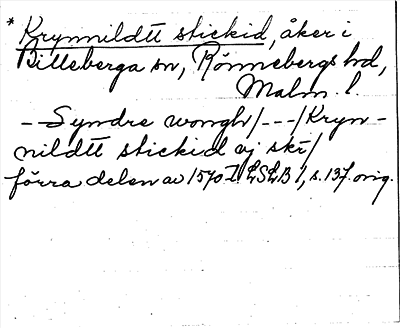 * Krynnildtt stickid, åker i
Billeberga sn, Rönnebergs hd,
Malm. l.
- Syndre wongh/---/Kryn-
nildtt stickid ej skr/
förra delen av 1570 I LSLB 1, s. 137. orig.